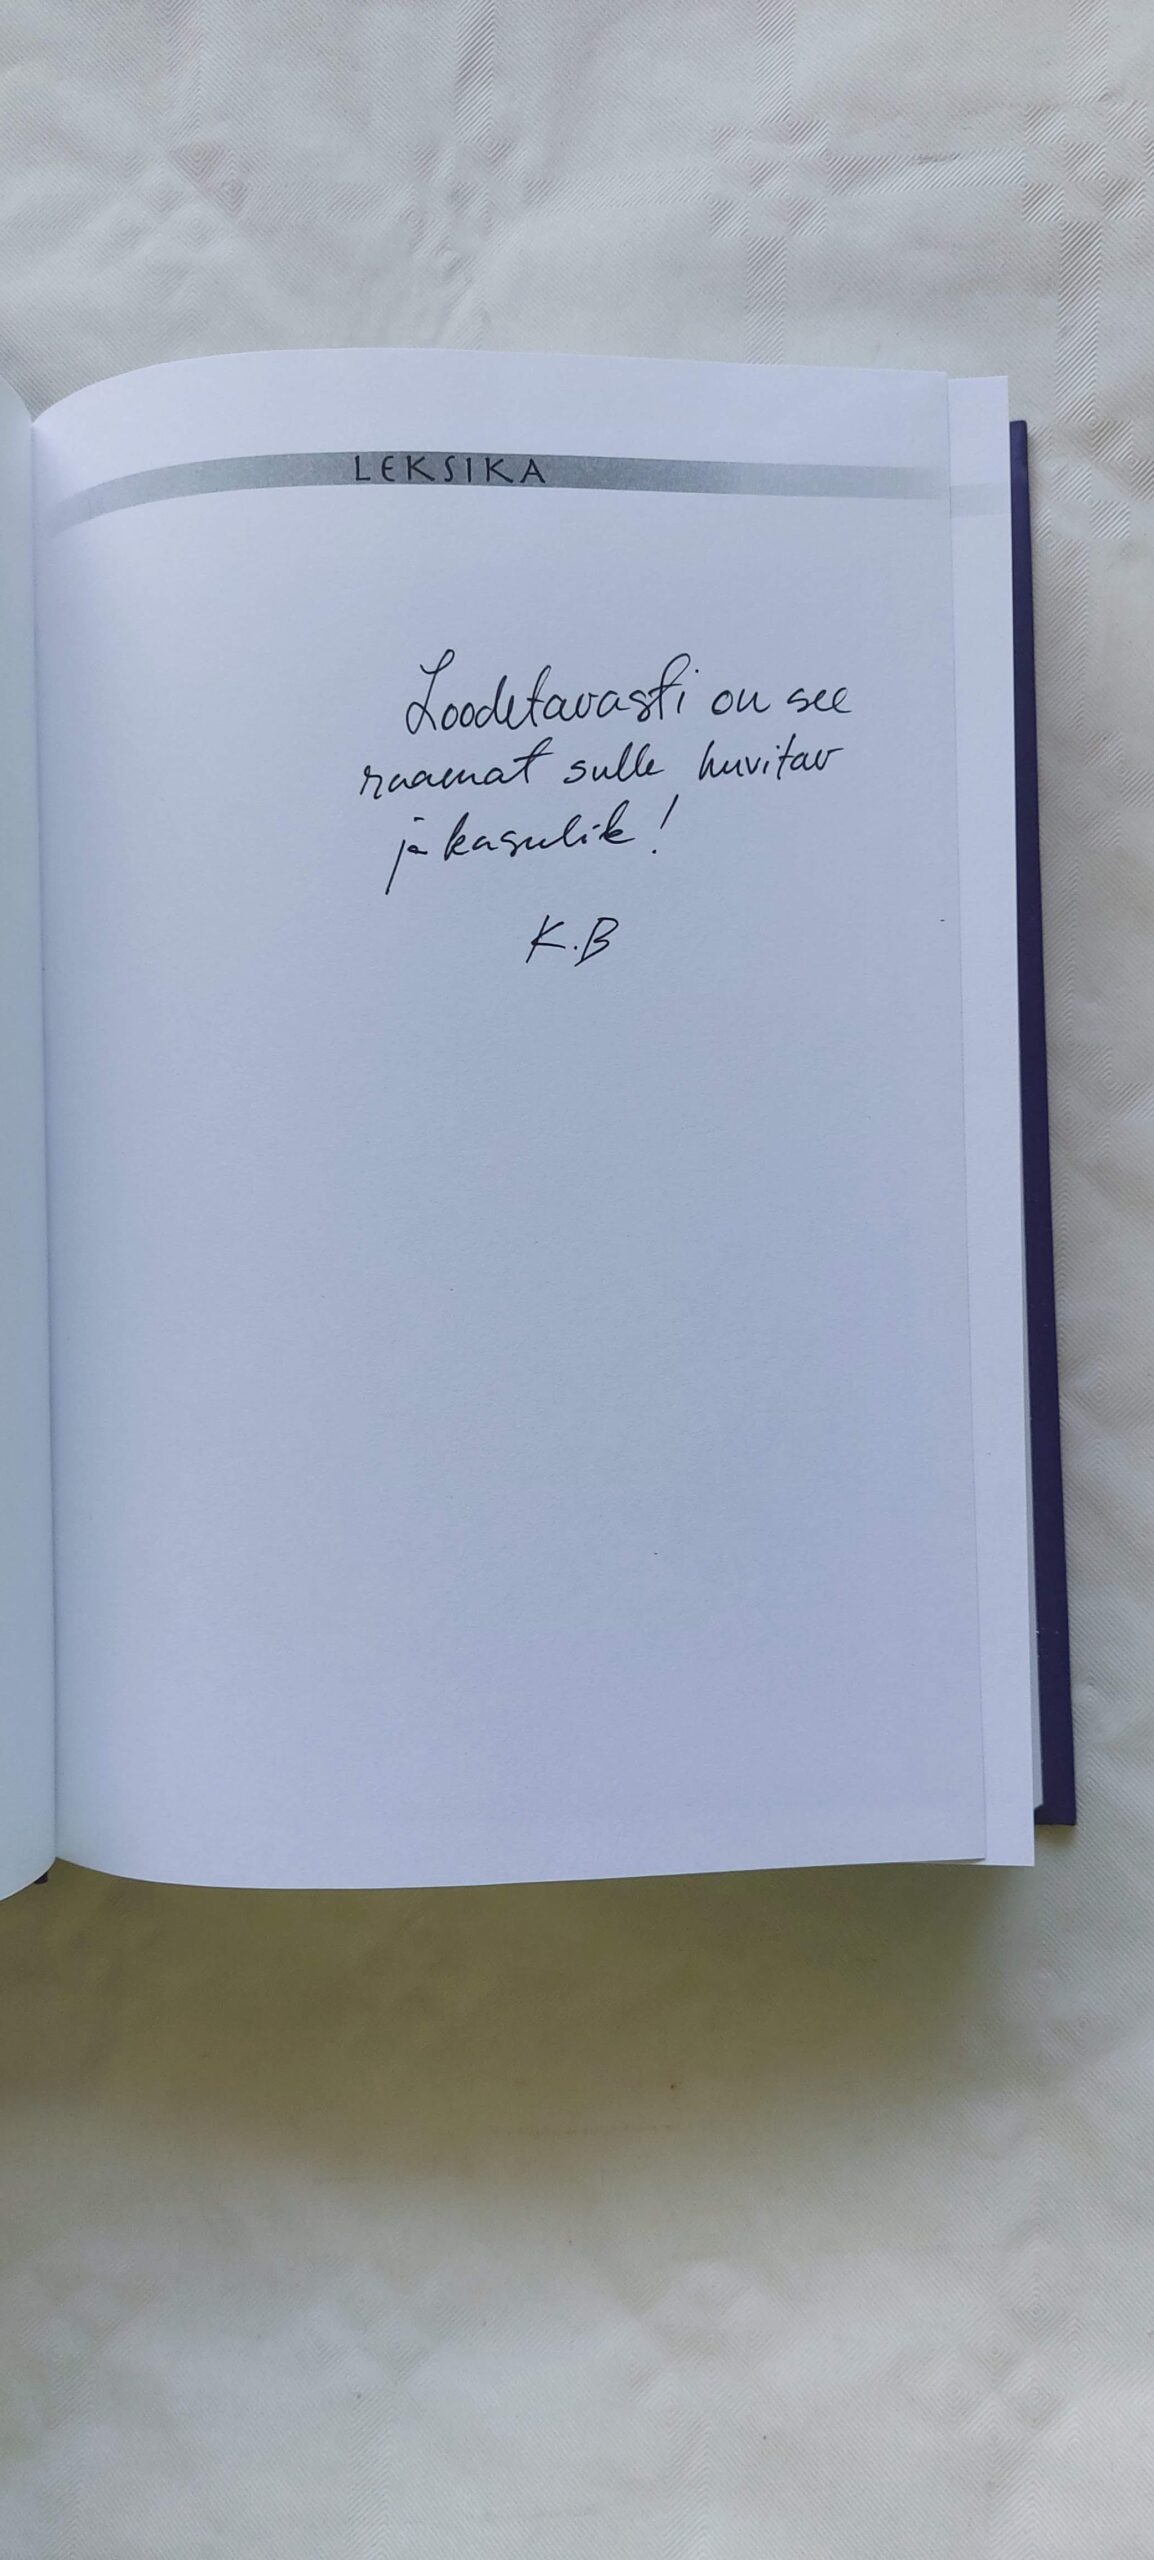 LEKSIKA
Loodetavasti on see
raamat sulle huvitav
ja kasulik!
K.B